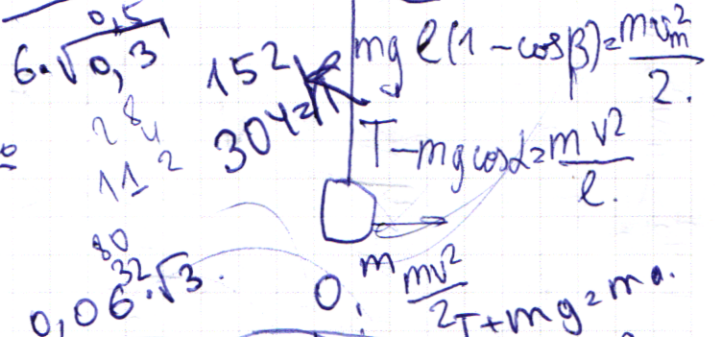 0,5
6·√0,3
152
mgl(1-cosβ)=mv_m²/2.
304
2 8 4
11 2
T-mgcosα=mv²/l.
80
32
0,06·√3.
0,
m
mv²/2
T+mg=ma.